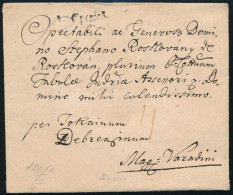 Eperies
Spectabili ac Generoso Domi-
no Stephano Roskovany de
Roskován, plurium I. Cottuum
Tabulae Judriae Assessori, Do-
mino mihi colendissimo.
per Tokainum
Debrezinum
Mag: Varadini